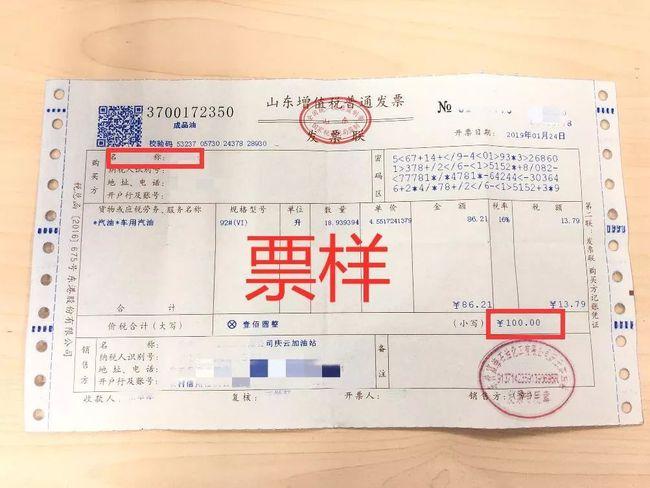 3700172350
山东增值税普通发票
№
成品油
山东
发票联
校验码 53237 05730 24378 28930
开票日期: 2019年01月24日
购买方
名 称:
纳税人识别号:
地址、电话:
开户行及账号:
密码区
5<67+14+</9-4<01>93*3>26860
1>378+/2</6-<1>5152+8/082-
<77781*/*4781*-64244<-30364
6+2*4/*78+/2</6-<1>5152+3*9
货物或应税劳务、服务名称 规格型号 单位 数量 单价 金额 税率 税额
*汽油*车用汽油 92#(VI) 升 18.939394 4.5517241379 86.21 16% 13.79
票样
合 计 ¥86.21 ¥13.79
价税合计(大写) ⊗壹佰圆整 (小写) ¥100.00
销售方
名 称: 公司庆云加油站
纳税人识别号:
地址、电话:
开户行及账号:
备注
收款人: 复核: 开票人: 销售方:(章)
税总函[2016]675号东港股份有限公司
第二联:发票联 购买方记账凭证